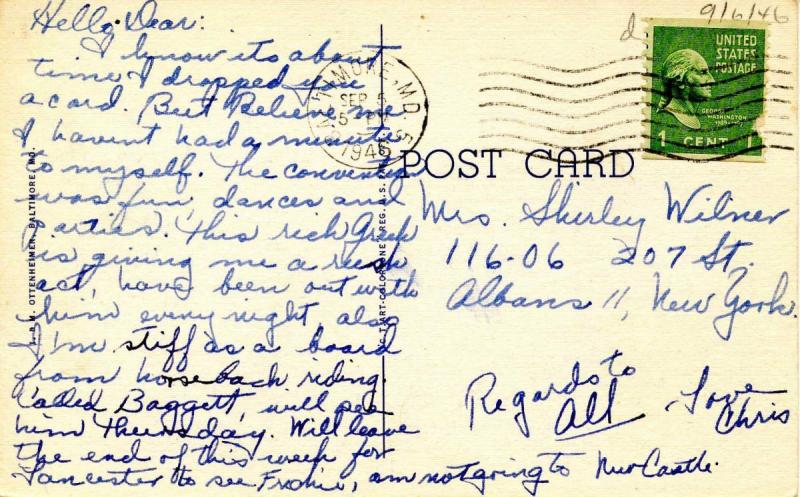 9/6/46
d
Hello Dear:
I know its about
time I dropped you
a card. But Believe me
I havent had a minute
to myself. The convention
was fun, dances and
parties. This rich Greek
is giving me a rush
act, have been out with
him every night, also
I'm stiff as a board
from horseback riding.
Called Baggett, will see
him Thursday. Will leave
the end of this week for
Lancaster to see Frankie, am not going to New Castle.
Regards to
All
Love
Chris
BALTIMORE, MD.
SEP 5
1946
UNITED
STATES
POSTAGE
GEORGE
WASHINGTON
1 CENT 1
POST CARD
Mrs. Shirley Wilner
116-06 207 St.
Albans 11, New York.
I. & M. OTTENHEIMER, BALTIMORE, MD.